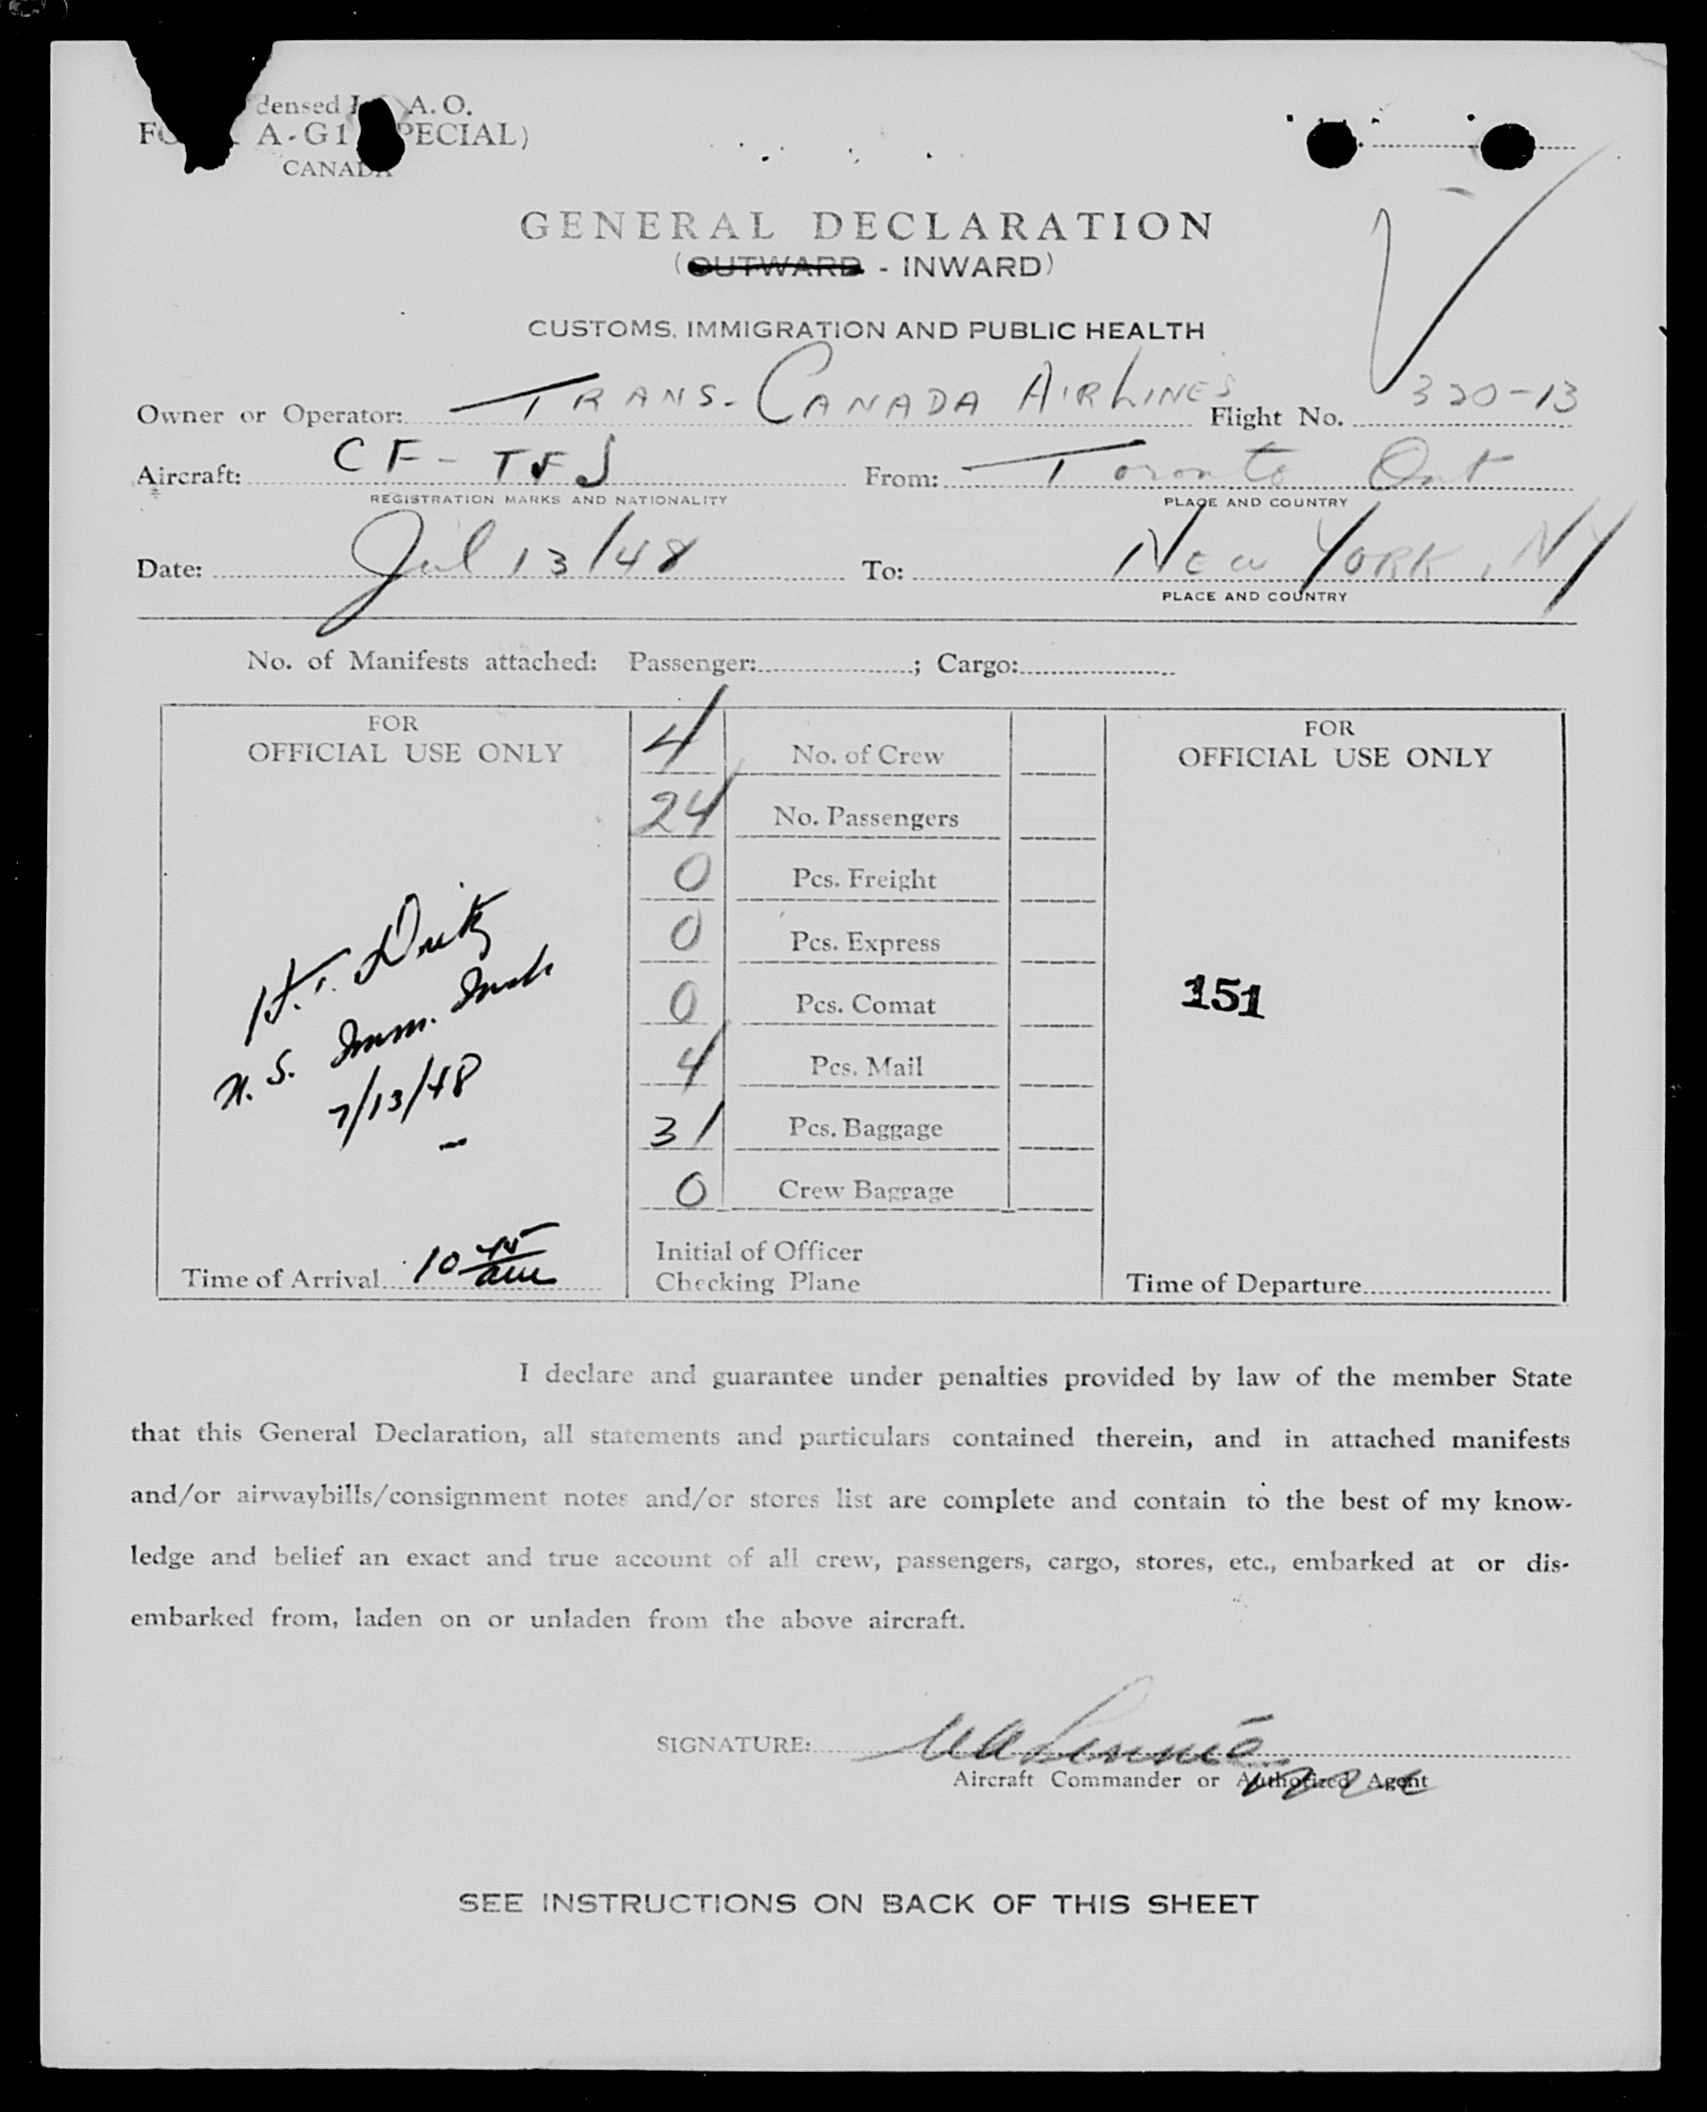 densed I A. O.
A-G1 PECIAL)
CANADA
GENERAL DECLARATION
(OUTWARD - INWARD)
CUSTOMS, IMMIGRATION AND PUBLIC HEALTH
Owner or Operator: TRANS-CANADA AIRLINES Flight No. 320-13
Aircraft: CF-TFJ From: Toronto Ont
REGISTRATION MARKS AND NATIONALITY PLACE AND COUNTRY
Date: Jul 13/48 To: NEW YORK, NY
PLACE AND COUNTRY
No. of Manifests attached: Passenger: ; Cargo:
FOR
OFFICIAL USE ONLY
H.T.
U.S. Imm. Insp.
7/13/48
Time of Arrival 10 45 am
4 No. of Crew
24 No. Passengers
0 Pcs. Freight
0 Pcs. Express
0 Pcs. Comat
4 Pcs. Mail
31 Pcs. Baggage
0 Crew Baggage
Initial of Officer
Checking Plane
FOR
OFFICIAL USE ONLY
151
Time of Departure
I declare and guarantee under penalties provided by law of the member State
that this General Declaration, all statements and particulars contained therein, and in attached manifests
and/or airwaybills/consignment notes and/or stores list are complete and contain to the best of my know-
ledge and belief an exact and true account of all crew, passengers, cargo, stores, etc., embarked at or dis-
embarked from, laden on or unladen from the above aircraft.
SIGNATURE:
Aircraft Commander or Authorized Agent
SEE INSTRUCTIONS ON BACK OF THIS SHEET